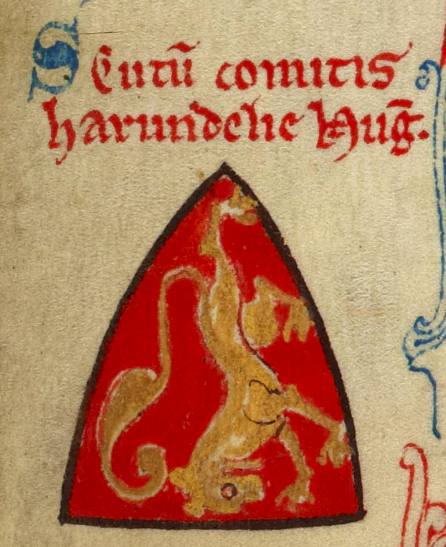 Scutū comitis
harundelie Huḡ.